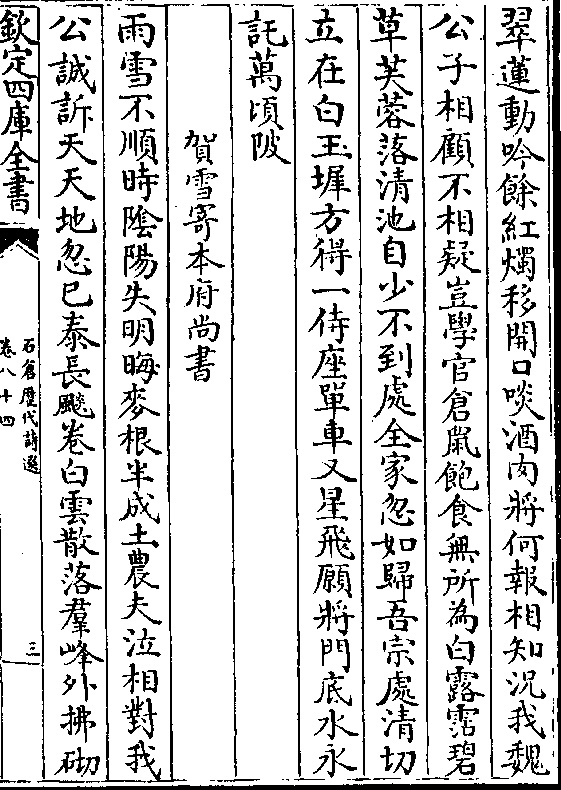 翠蓮動吟餘紅燭移開口啖酒肉將何報相知况我魏
公子相顧不相疑豈學官倉鼠飽食無所為白露霑碧
草芙蓉落清池自少不到處全家忽如歸吾宗處清切
立在白玉墀方得一侍座單車又星飛願將門底水永
託萬頃陂
賀雪寄本府尚書
雨雪不順時陰陽失明晦麥根半成土農夫泣相對我
公誠訴天天地忽已泰長飈卷白雲散落羣峰外拂砌
欽定四庫全書
石倉歷代詩選
卷八十四
三